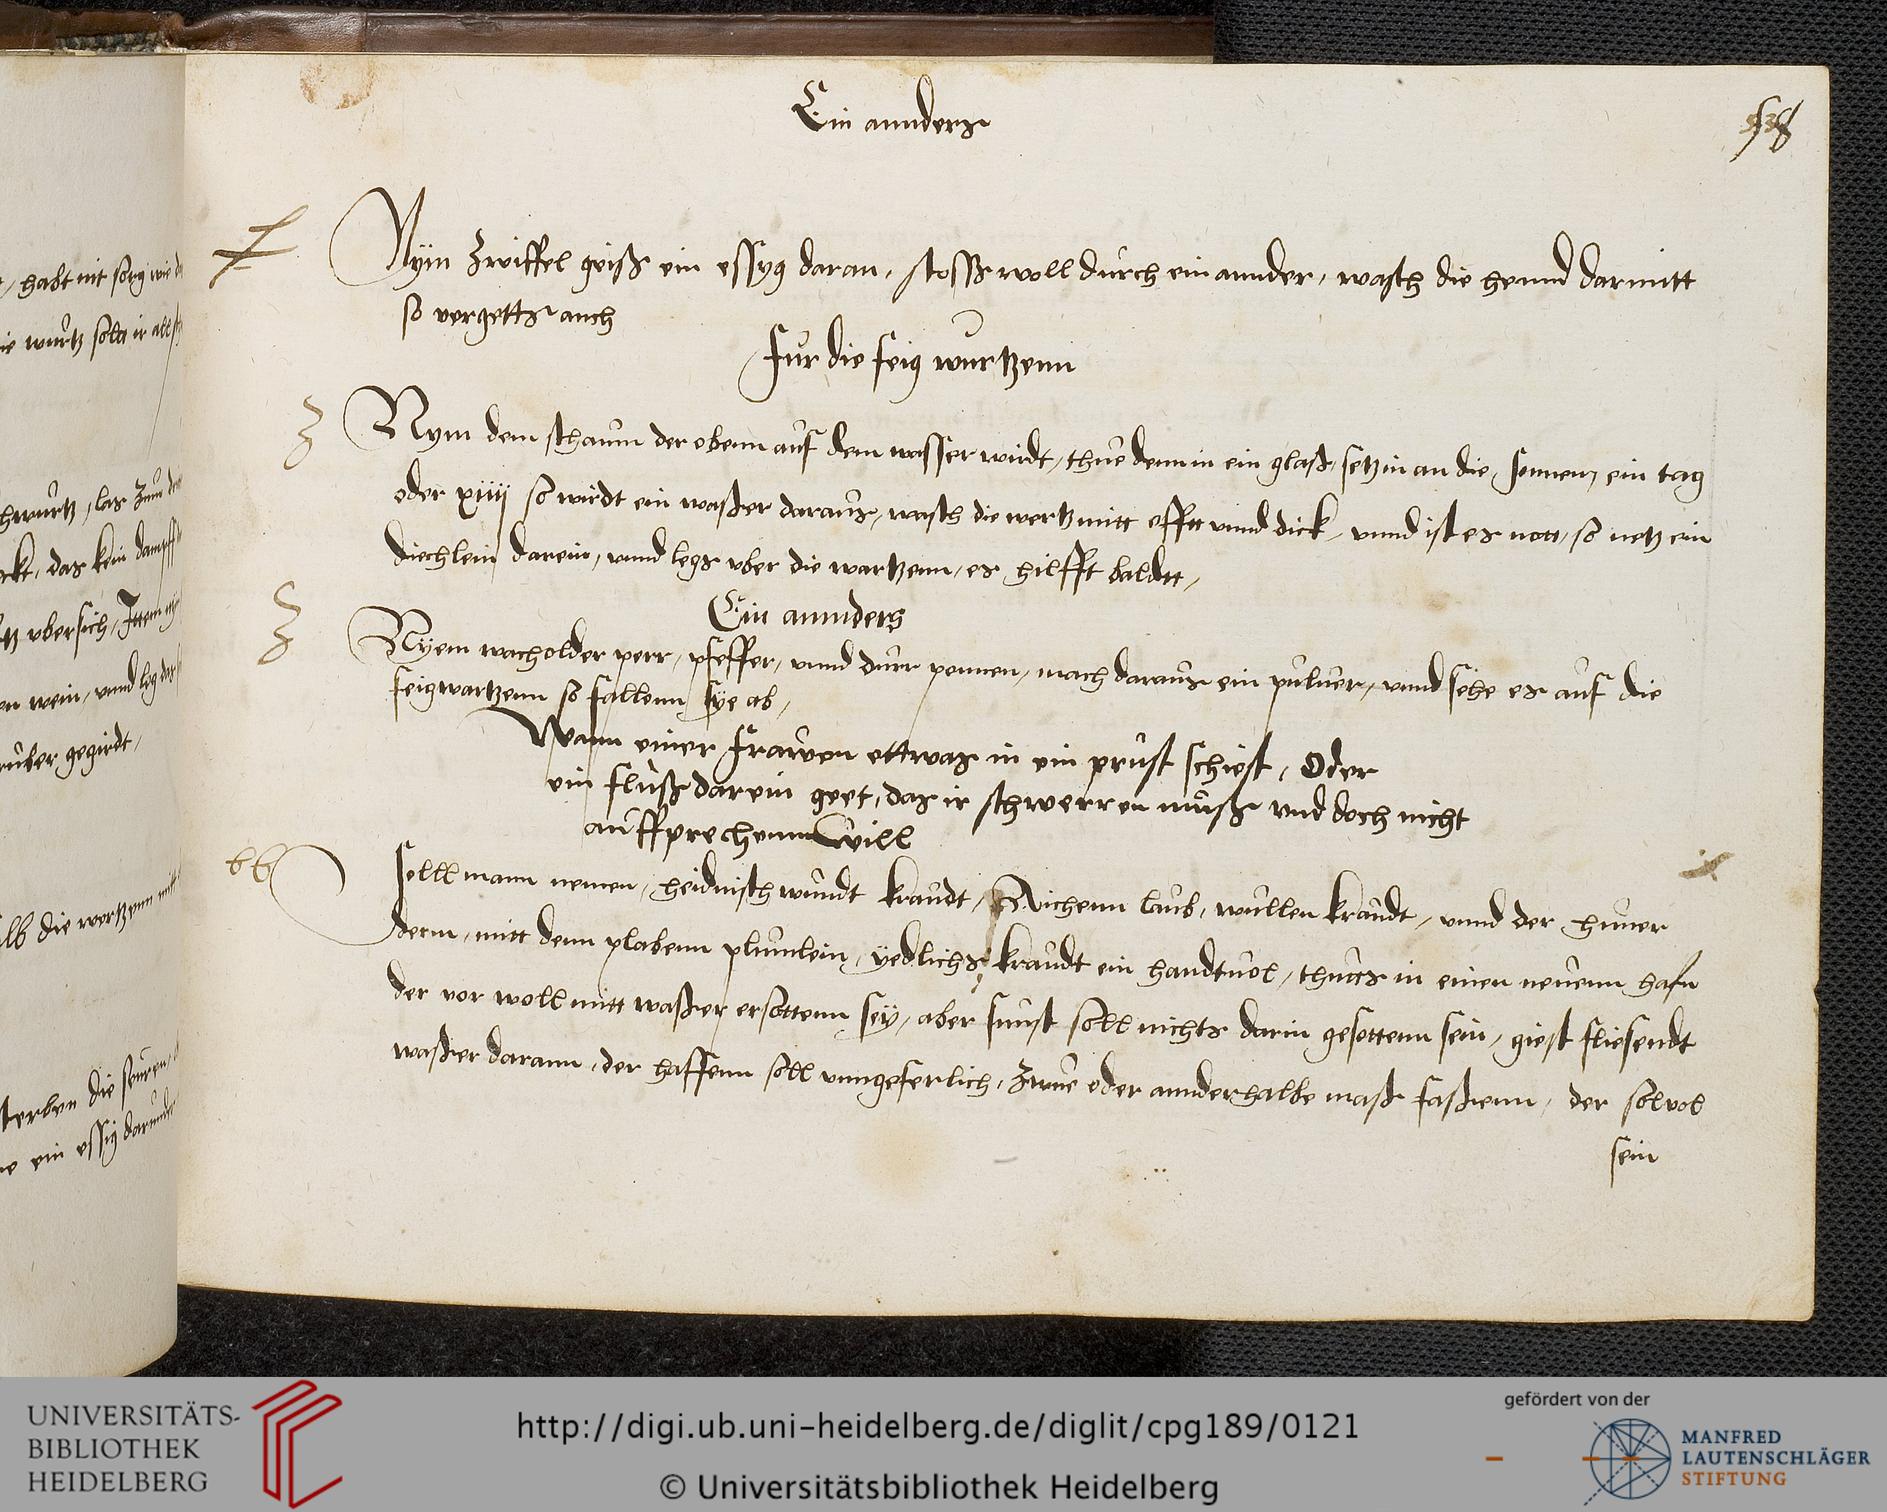 Ein annders
Nÿm zwiffel geiß ein essyg daran, stosß woll durch ein annder, wasch die hennd darmitt
so vergetts auch
Fur die feig wurtzenn
Nym dem schaum der obenn auf dem wasser wirdt, thue denn in ein glaß, setz in an die sonnen, ein tag
oder xiiij so wirdt ein waßer daraus, wasch die wertz mitt efftt vnnd dick, vnnd ist es nott, so netz ein
diechlein darein, vnnd legs vber die wartzenn, es hilfft baldtt,
Ein annders
Nÿem wacholder perr, pfeffer, vnnd durr ponnen, mach daraus ein puluer, vnnd sehe es auf die
feigwartzenn so fallenn sÿe ab,
Wann einer frawen ettwas in ein prust schiest, Oder
ein fluß darein geet, das ir schwerren muß vnd doch nicht
auffprechenn will
solll mann nemen, heidnisch wundt kraudt, Aichenn laub, wullen kraudt, vnnd der huner
derm, mitt denn plabenn plumlein, ÿedlichs kraudt ein handtuol, thutts in einen neuenn hafn
der vor woll mitt waßer ersottenn seÿ, aber sunst soll nichts darin gesottenn sein, giest fliesendt
waßer darann, der haffenn soll vnngeferlich, zwue oder annderhalbe maß faßenn, der sol vol
sein
habt nit sorg wie
die wurtz solt ir all
das kein dampff
vbersich, Ittem
wein, vnnd leg das
gegirdt,
die wertzenn mitt
ein essig darunder
UNIVERSITÄTS-
BIBLIOTHEK
HEIDELBERG
http://digi.ub.uni-heidelberg.de/diglit/cpg189/0121
© Universitätsbibliothek Heidelberg
gefördert von der
MANFRED
LAUTENSCHLÄGER
STIFTUNG